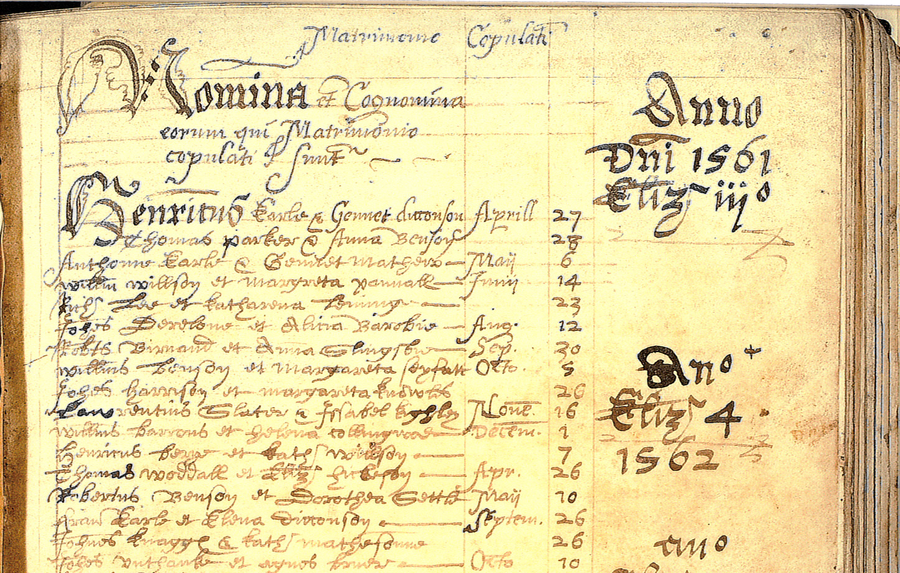 Matrimonio Copulati
Nomina et Cognomina
eorum qui Matrimonio
copulati sunt
Anno
Dni 1561
Eliz iijo
Henricus Karle & Gennet dicconson Aprill 27
Thomas parker & Anna Benson 28
Anthonie Karle & Gennet Mathew Maij 6
willm willson et margreta Junij 14
Richs Lee et katharena 23
Johes et Alicia Aug. 12
Robts Birnand et Anna Slingsbie Sep. 30
willmus Benson et Margareta Octo 5
Johes harrison et margareta 26
Lawrentius Slater & Issabel kighley Nove. 16
willms barrons et helena collingwoode Decem. 1
Ano
Eliz 4
1562
Henricus et kath willson 7
Thomas woddall et Eliz Apr. 26
Robertus Benson et Dorothea Settle Maij 10
Karle et Elena dicconson Septem. 26
Johnes & kath mathewsonne 26
Johes et agnes Octo 10
ano